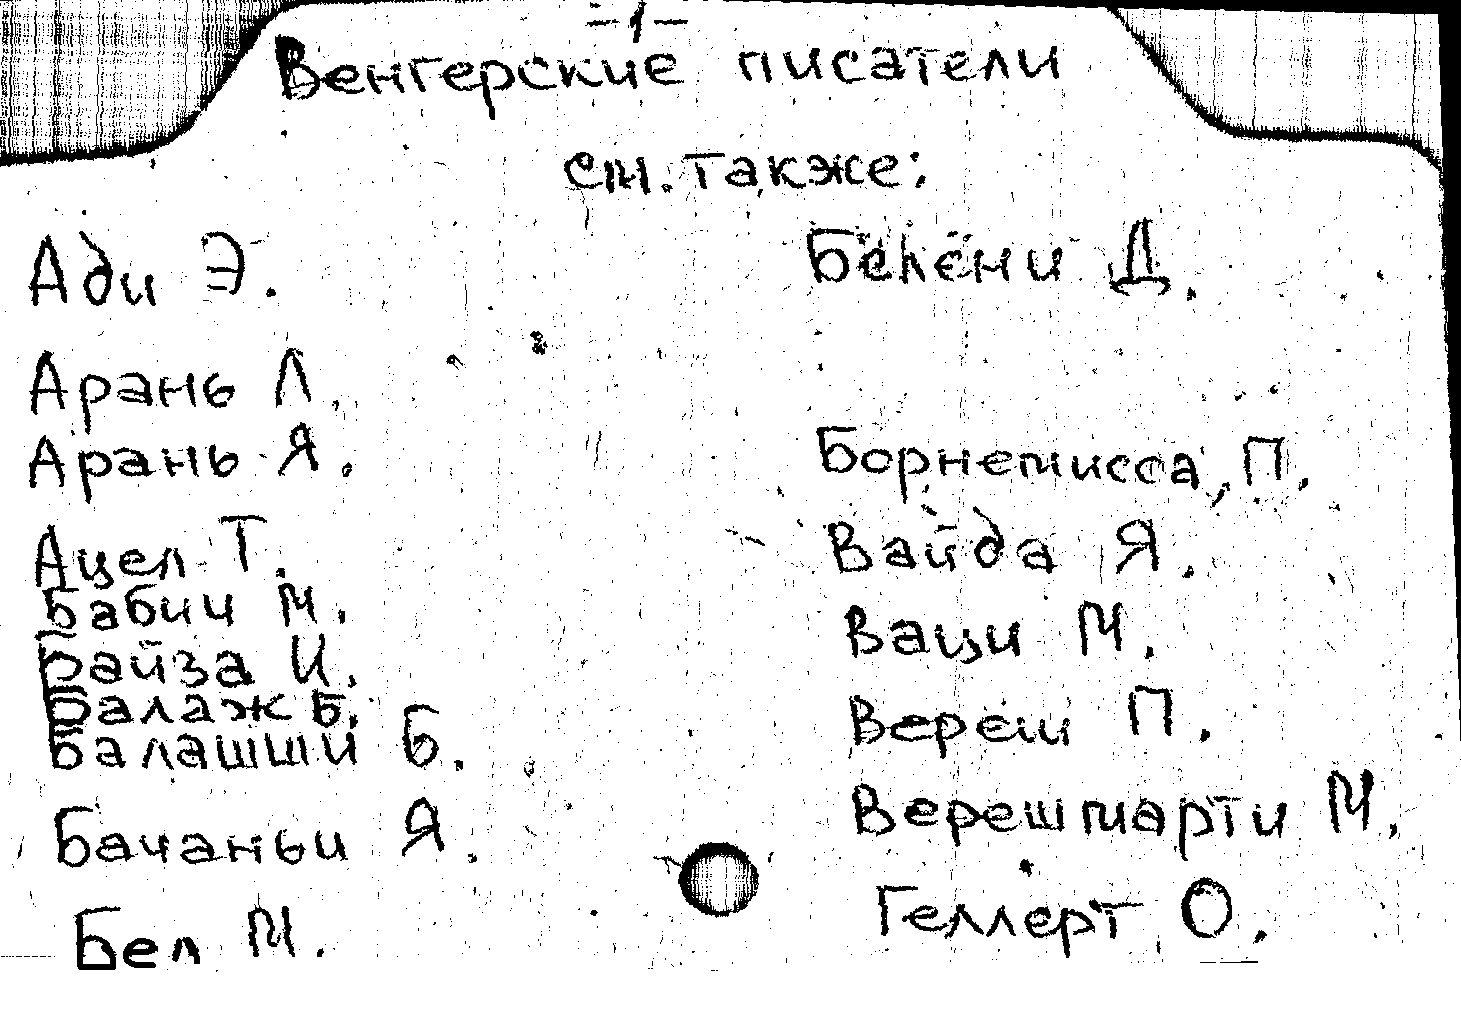 -1-
Венгерские писатели
см. также:
Ади Э.
Арань Л.
Арань Я.
Ацел Т.
Бабич М.
Байза И.
Балаж Б.
Балашши Б.
Бачаньи Я.
Бел М.
Бекени Д.
Борнемисса, П.
Вайда Я.
Ваци М.
Вереш П.
Верешмарти М.
Геллерт О.